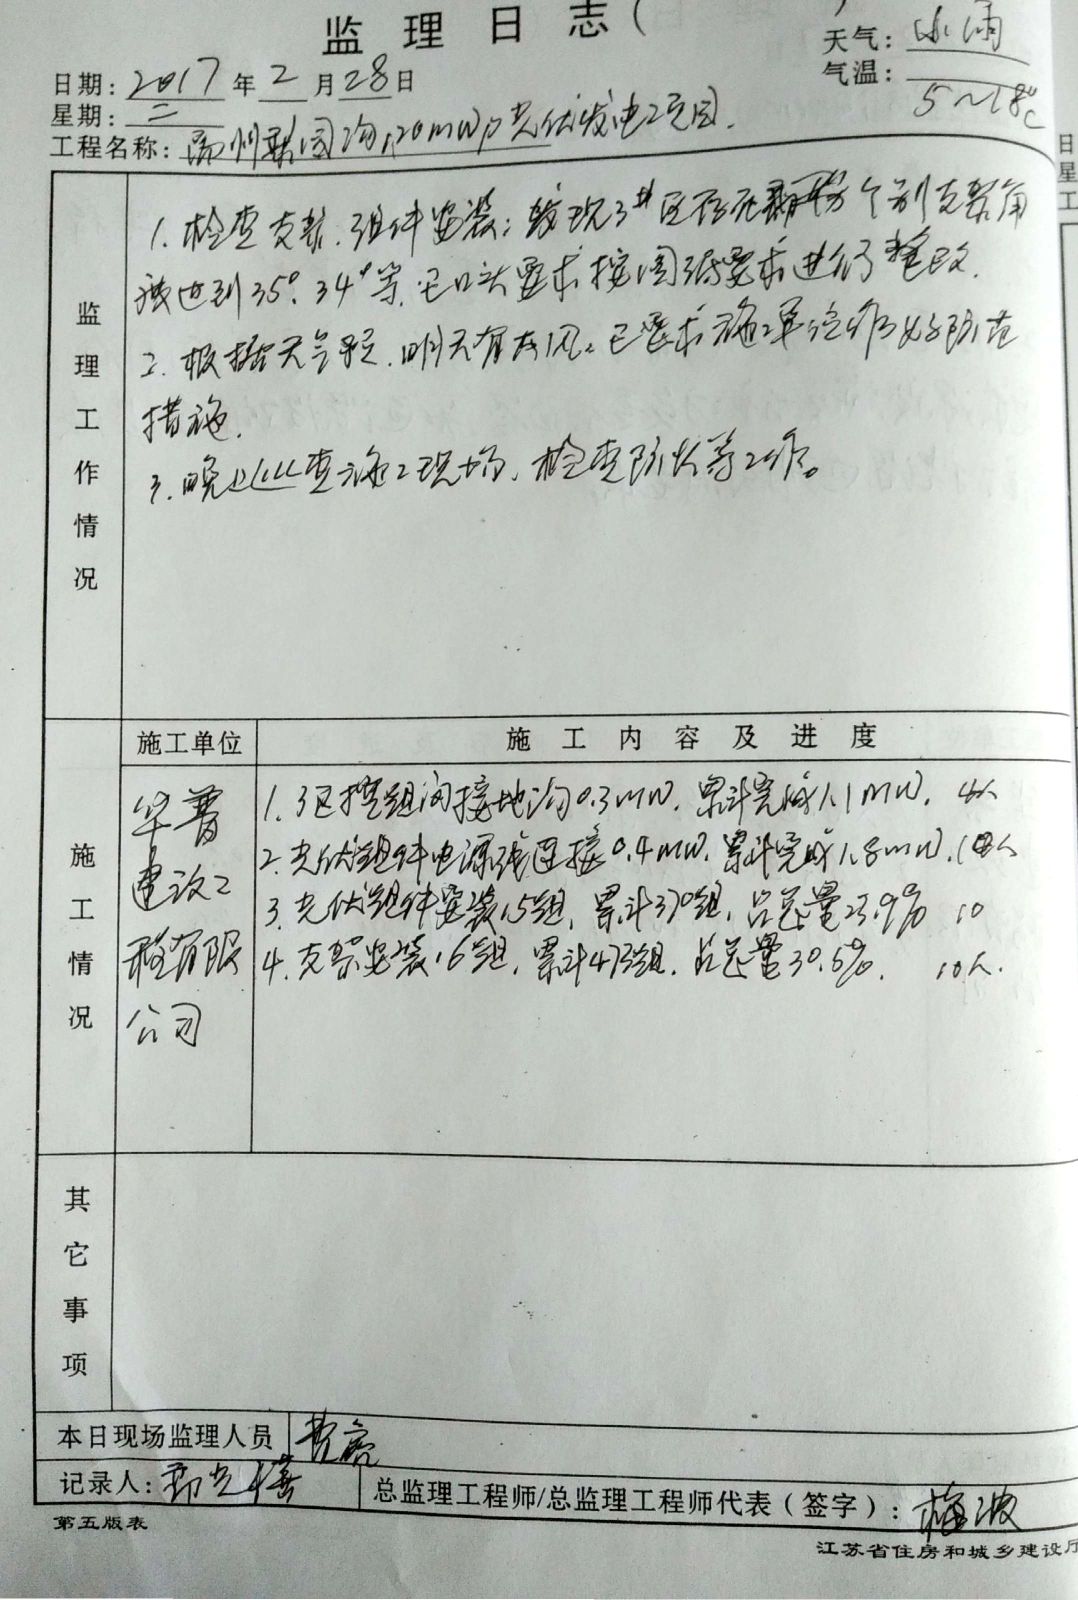 监理日志(
天气: 小雨
日期: 2017年2月28日
气温: 5~18℃
星期: 二
工程名称: 20MWp光伏发电工程项目.
日
星
工
监理工作情况
1. 检查支架、组件安装; 发现3#区存在个别支架角
度达到35°、34°等, 已口头要求按图纸要求进行整改.
2. 根据天气预, 明天有大风, 已要求施工单位做好防范
措施.
3. 晚上巡查施工现场, 检查防火等工作。
施工单位
施工内容及进度
施工情况
华普
建设工
程有限
公司
1. 3区组间接地沟0.3MW, 累计完成1.1MW, 4人
2. 光伏组件电源线连接0.4MW, 累计完成1.8MW, 人
3. 光伏组件安装15组, 累计370组, 占总量23.9% 10
4. 支架安装16组, 累计473组, 占总量30.5%. 10人.
其它事项
本日现场监理人员
记录人:
总监理工程师/总监理工程师代表(签字): 梅波
第五版表
江苏省住房和城乡建设厅